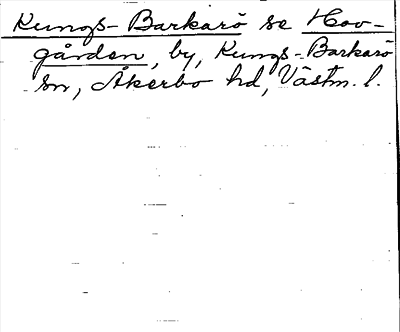 Kungs-Barkarö se Hov-
gården, by, Kungs-Barkarö
sn, Åkerbo hd, Västm. l.